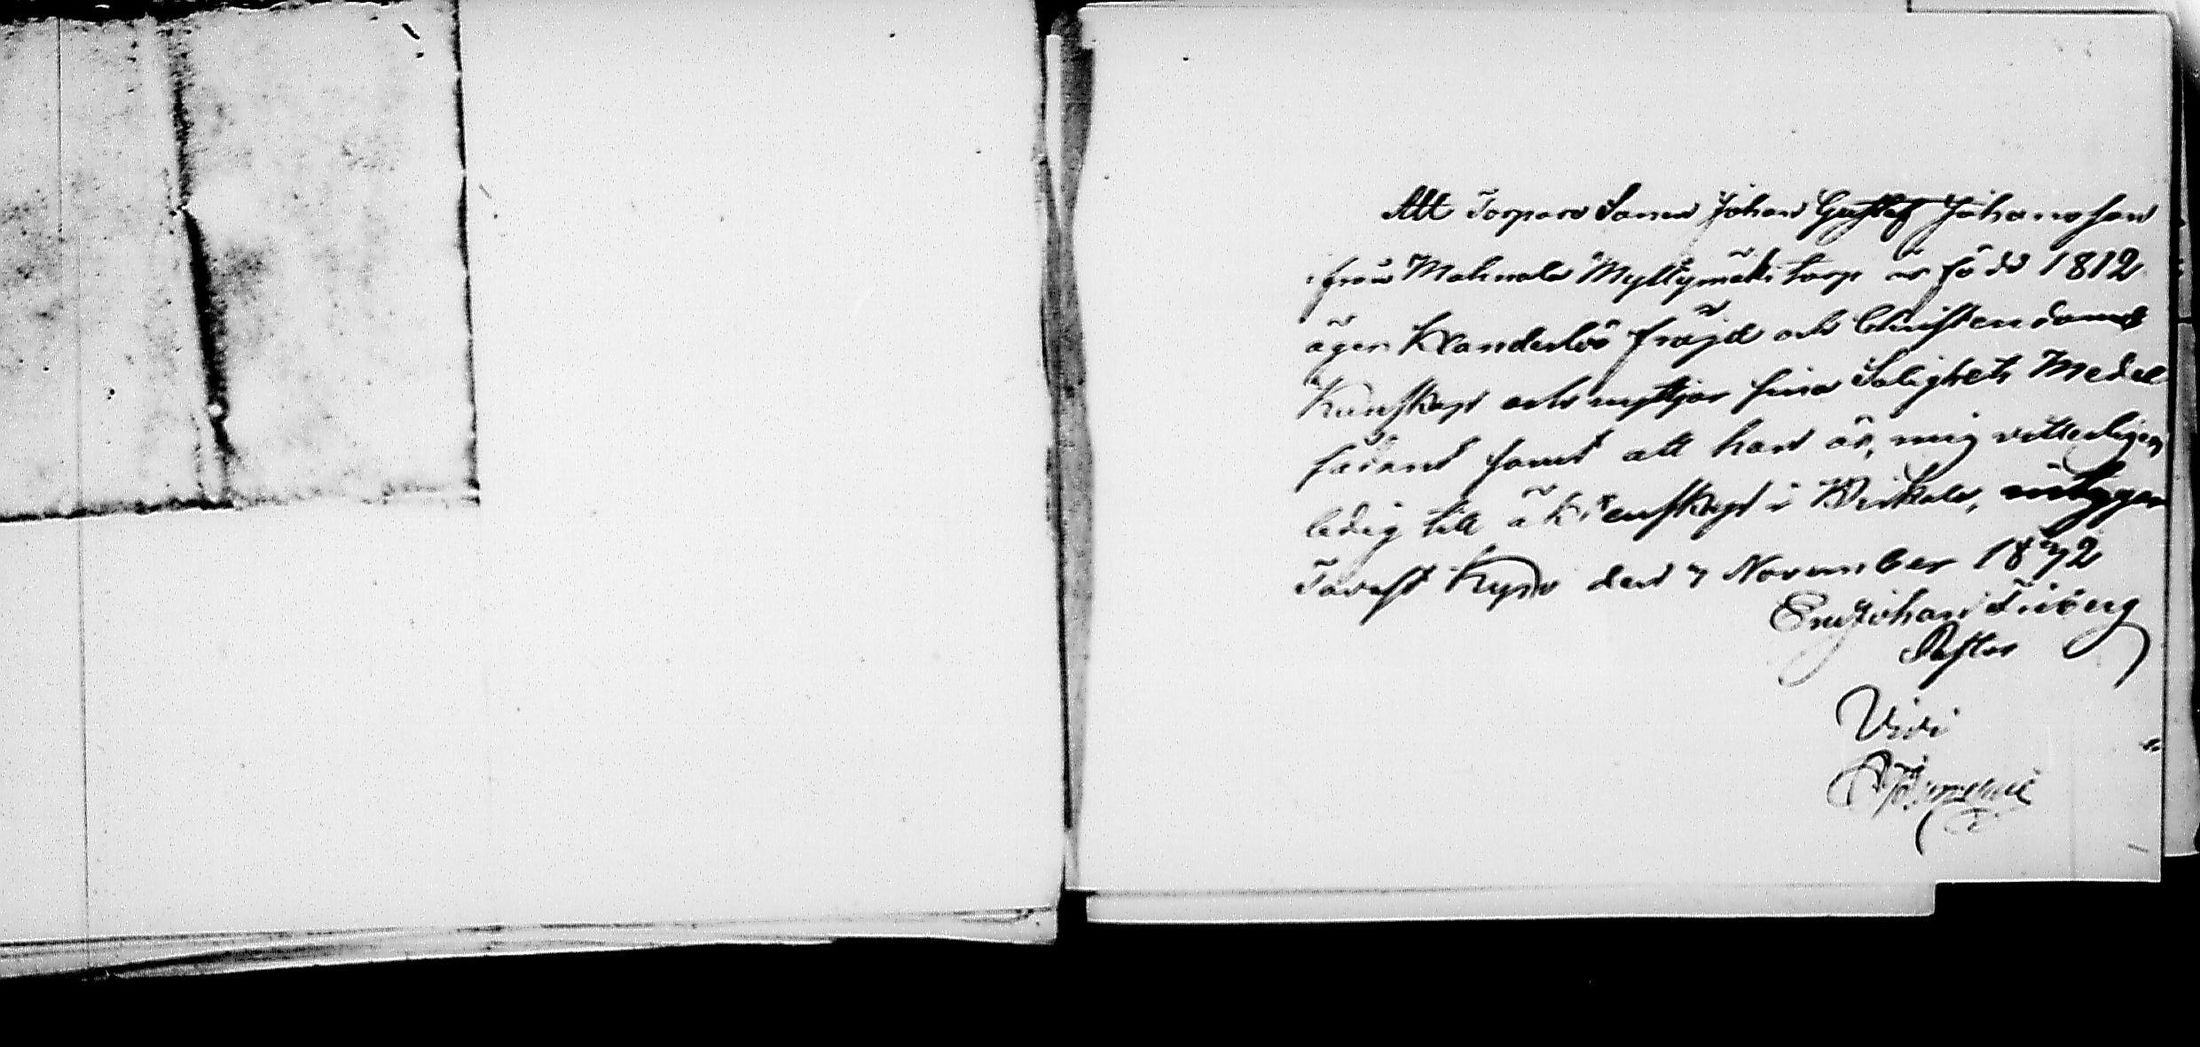 Att Torpare Sonen Johan Gustaf Johansson
från Mahnala Myllymäki torp är född 1812
äger Klanderlös fräjd och Christendoms
Kunskap och nyttjar sina Salighets Medel
sådant samt att han är, mig vitterligen,
ledig till äktenskap i Wirkala, intygar
Tavast Kyro den 7 November 1842
Johan Friberg
Pastor
Vidi